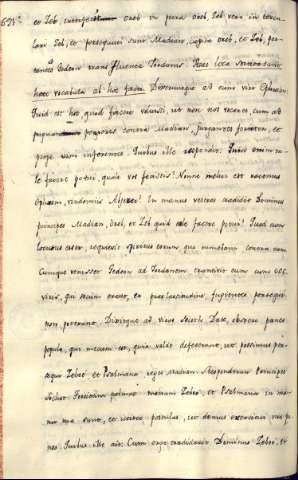 et Zeb, interfecit oreb in petra oreb, Zeb vero in torcu-
lari Zeb, et persequuti sunt Madian, capita oreb, et Zeb, por-
tantes Gedeon trans fluenta Jordanis. Haec loca
hoc vocabula ab hoc facta. Dixeruntque ad eum viri Ephraim
Quid est hoc quod facere voluisti, ut non nos vocares, cum ad
pugnam pergeres contra Madian, jurgantes fortiter, et
prope vim inferentes. Quibus ille respondit: Quid enim ta-
le facere potui, quale vos fecistis? Nonne melior est racemus
Ephraim, vindemiis Abiezer? In manus vestras tradidit Dominus
principes Madian, Oreb, et Zeb quid tale facere potui? Quod cum
locutus esset, requievit spiritus eorum, quo tumebant contra eum
Cumque venisset Gedeon ad Jordanem, transivit eum cum
viris, qui secum erant, et prae lassitudine, fugientes persequi
non poterant. Dixitque ad viros Socoth, Date, obsecro panes
populo, qui mecum est, quia valde defecerunt, ut possimus perse-
qui Zebee et Psalmana reges Madian. Responderunt Principes
Socoth Forsitan palmae manuum Zebee, et Psalmana in ma-
nu tua sunt, et idcirco postulas, ut demus exercitui tuo pa-
nes. Quibus ille ait: Cum ergo tradiderit Dominus Zebee, et